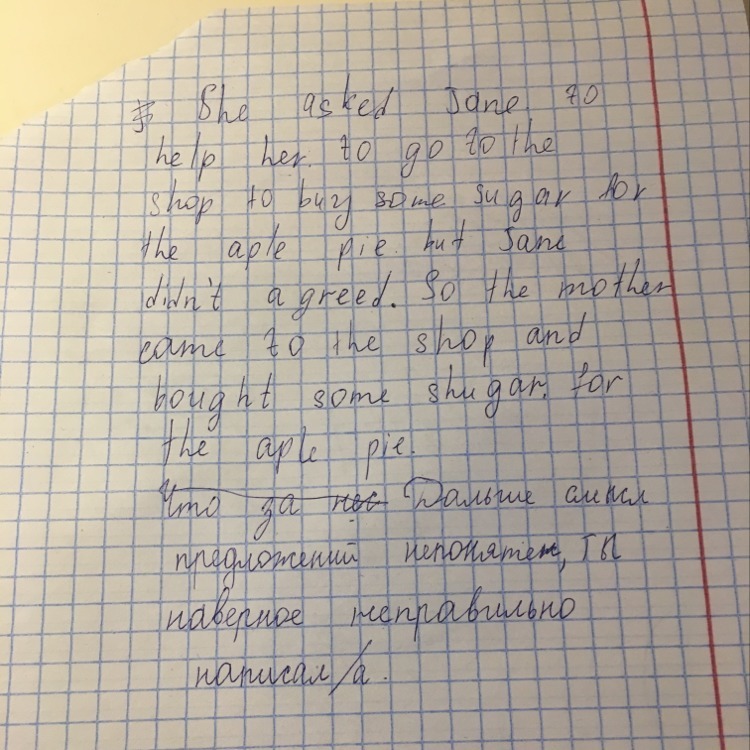 She asked Jane to
help her. to go to the
shop to buy some sugar for
the aple pie. but Jane
didn't agreed. So the mother
came to the shop and
bought some shugar. for
the aple pie.
Что за нес Дальше смысл
предложений непонятен, ты
наверное неправильно
написал/а.